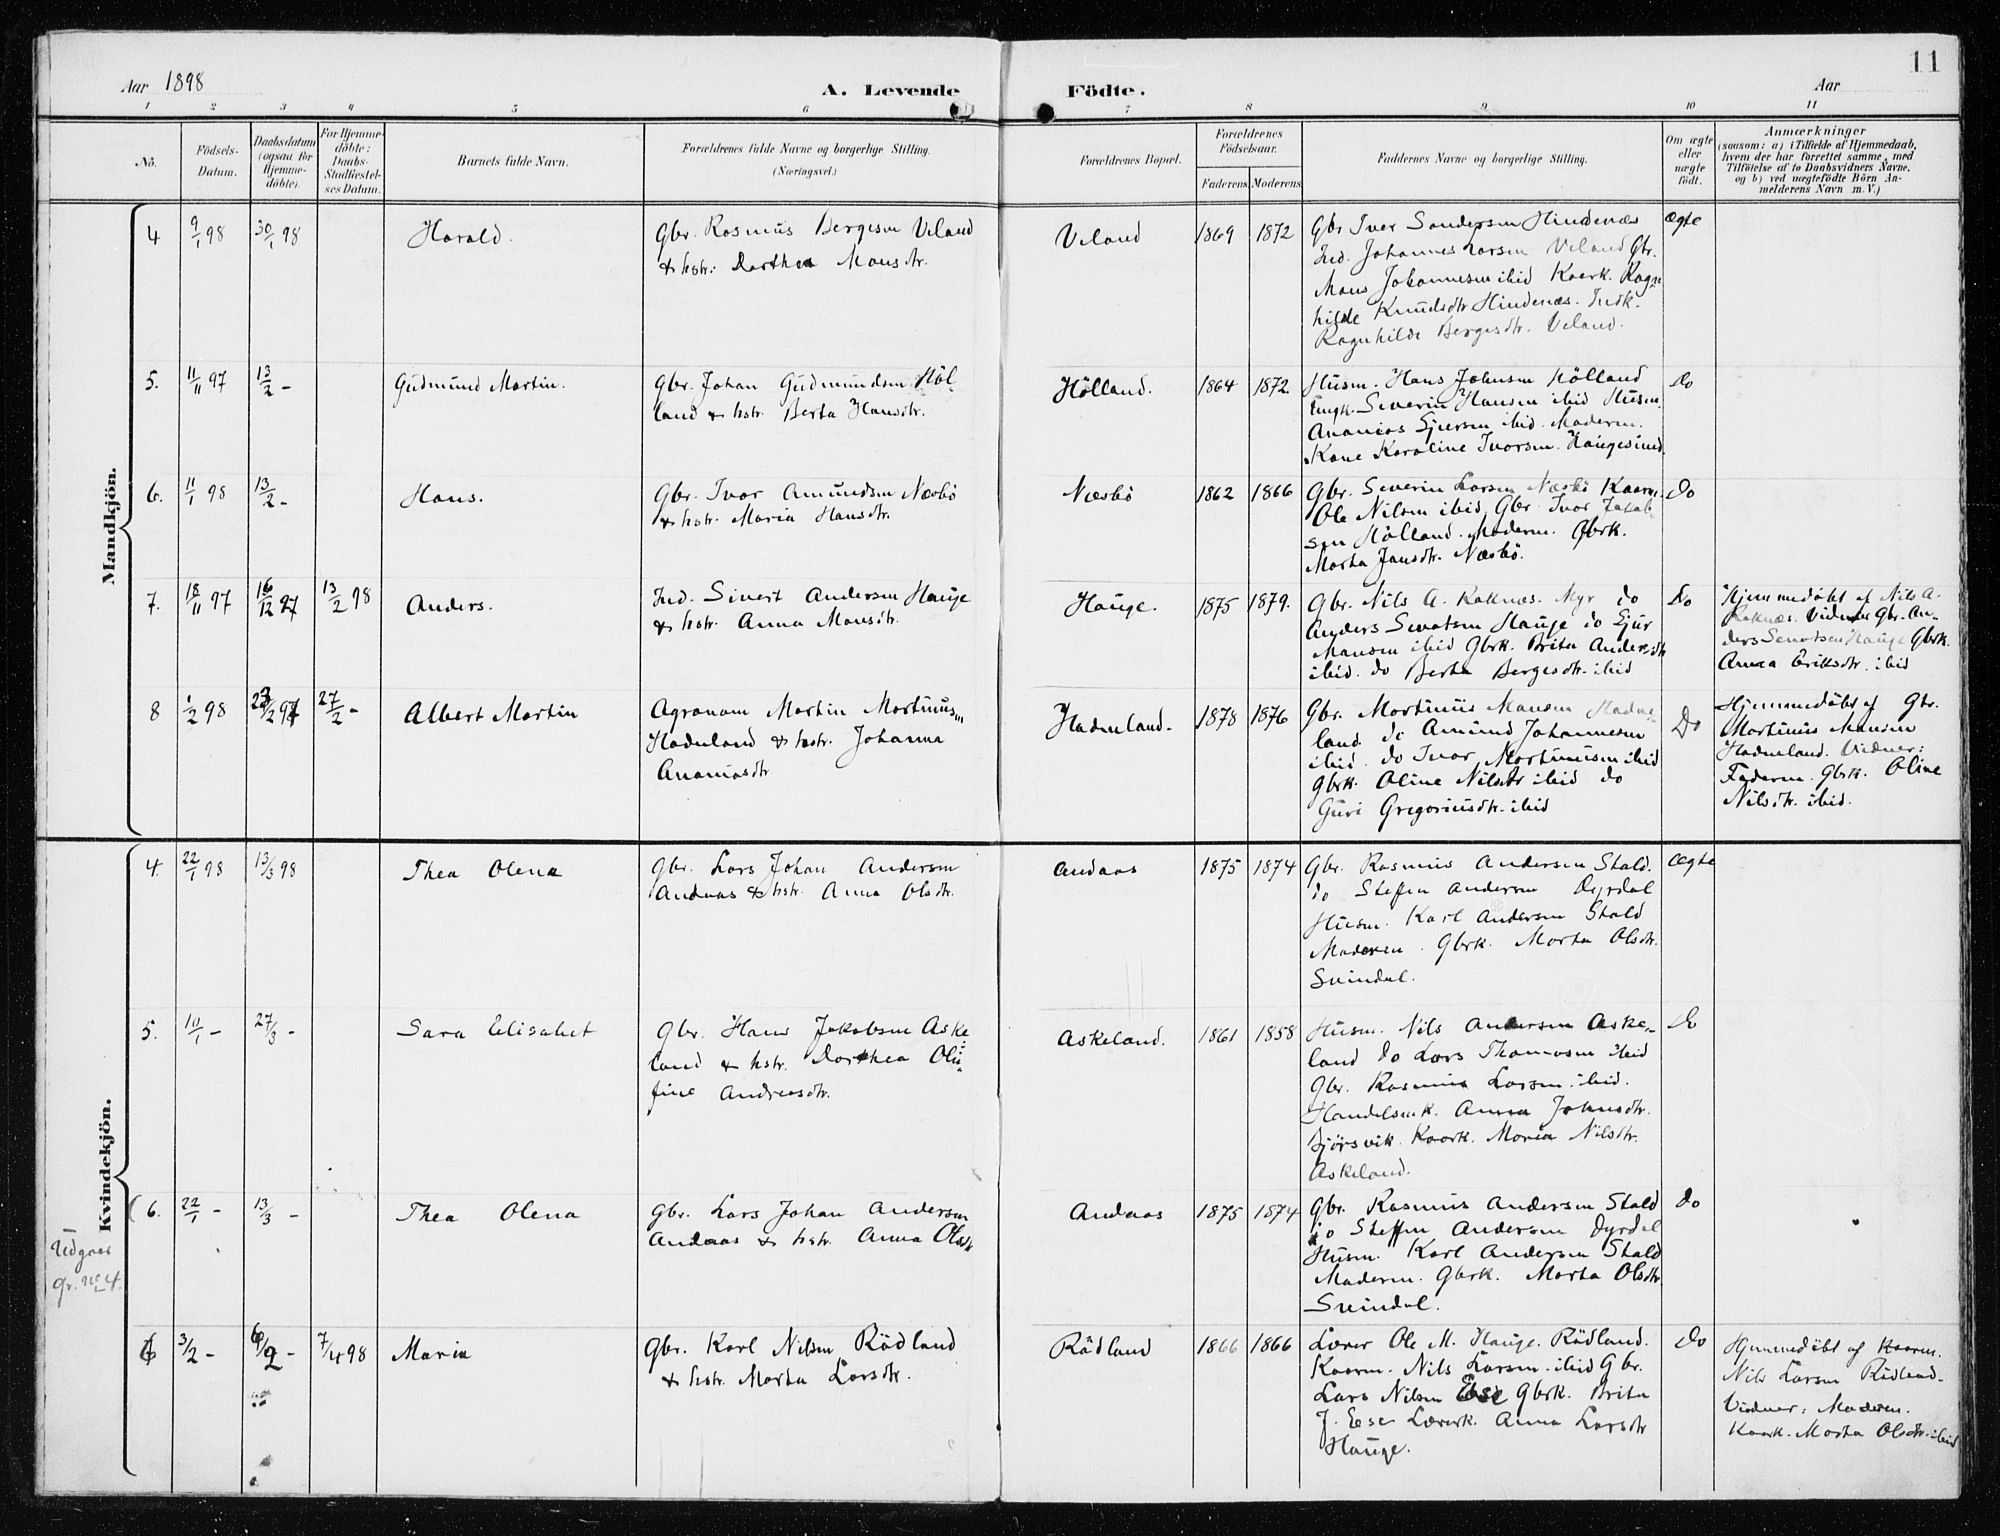 11
Aar 1898
A. Levende Födte.
Aar
1 2 3 4 5 6 7 8 9 10 11
No.
Födsels-
Datum.
Daabsdatum
(ogsaa for
Hjemme-
döbte).
For Hjemme-
döbte:
Daabs-
Stadfæstel-
ses Datum.
Barnets fulde Navn.
Forældrenes fulde Navne og borgerlige Stilling.
(Næringsvei.)
Forældrenes Bopæl.
Forældrenes
Födselsaar.
Faderens. Moderens.
Faddernes Navne og borgerlige Stilling.
Om ægte
eller
uægte
födt.
Anmærkninger
(saasom: a) i Tilfælde af Hjemmedaab,
hvem der har forrettet samme, med
Tilföielse af to Daabsvidners Navne,
og b) ved uægtefödte Börn An-
melderens Navn m. V.)
Mandkjön.
4 9/1 98 30/1 98 Harald.
Gbr. Rasmus Bergesen Veland
& hstr: Dorthea Monsdtr.
Veland 1869 1872
Gbr Iver Sandersen Hindenæs
Ind. Johannes Larsen Veland Gbr.
Mons Johannesen ibid Kaark. Ragn
hilde Knudsdtr Hindenæs. Indk.
Ragnhilde Bergesdtr. Veland.
ægte
5. 11/11 97 13/2 - Gudmund Martin.
Gbr. Johan Gudmundsen Höl-
land & hstr. Berta Hansdtr.
Hölland. 1864 1872.
Husm. Hans Johnsen Hölland
Ungk. Severin Hansen ibid Husm.
Ananias Gjersen ibid. Moderen.
Kone Karoline Ivarsen. Haugesund.
do
6. 11/1 98 13/2 - Hans.
Gbr. Ivar Amundsen Næsbö
& hstr. Maria Hansdtr.
Næsbö 1862 1866
Gbr. Severin Larsen Næsbö Kaarm.
Ole Nilsen ibid, Gbr Ivar Jakob-
sen Hölland. Moderen. Gbrk.
Marta Jansdtr. Næsbö.
do
7. 18/11 97 16/12 97 13/2 98 Anders.
Ind. Sivert Andersen Hauge
& hstr. Anna Monsdtr.
Hauge. 1875 1879.
Gbr. Nils A. Roknæs. Myr do
Anders Sivatsen Hauge do Gjur
Monsen ibid Gbrk. Brita Andersdtr
ibid. do Berta Bergesdtr. ibid
Do
Hjemmedöbt af Nils A.
Roknæs. Vidner Gbr. An-
ders Sivatsen Hauge Gbrk.
Anna Eriksdtr. ibid
8 1/2 98 23/2 97 27/2 - Albert Martin
Agronom Martin Martinus„
Hadneland & hstr. Johanna
Ananiasdtr
Hadneland. 1878 1876
Gbr. Martinus Monsen Hadne-
land. do Amund Johannesen
ibid. do Ivar Martinusen ibid
Gbrk. Oline Nilsdtr ibid do
Guri Gregoriusdtr. ibid
Do
Hjemmedöbt af Gbr.
Martinus Monsen
Hadneland. Vidner:
Faderen. Gbrk. Oline
Nilsdtr. ibid.
Kvindekjön.
4. 22/1 98 13/3 98 Thea Olena
Gbr. Lars Johan Andersen
Andaas & hstr. Anna Olsdtr.
Andaas 1875 1874
Gbr. Rasmus Andersen Stald.
do Steffen Andersen Dyrdal
Husm. Karl Andersen Stald
Moderen. Gbrk. Marta Olsdtr.
Sveindal.
Ægte
5. 10/1 - 27/3 - Sara Elisabet
Gbr. Hans Jakobsen Aske-
land & hstr. Dorthea Olu-
fine Andreasdtr.
Askeland. 1861 1858
Husm. Nils Andersen Aske-
land do Lars Thomasen ibid
Gbr. Rasmus Larsen. ibid.
Handelsmk. Anna Johnsdtr.
Bjørsvik. Kaark. Maria Nilsdtr.
Askeland.
do
(6. 22/1 - 13/3 - Thea Olena
Gbr. Lars Johan Andersen
Andaas & hstr. Anna Olsdtr
Andaas 1875 1874
Gbr. Rasmus Andersen Stald
do Steffen Andersen Dyrdal
Husm. Karl Andersen Stald
Moderen. Gbrk. Marta Olsdtr
Sveindal.
do
Udgaar
gr. No 4.
6 3/2 - 6/2 - 7/4 98 Maria
Gbr. Karl Nilsen Rödland
& hstr. Marta Larsdtr.
Rödland 1866 1866
Lærer Ole M. Hauge. Rödland.
Kaarm. Nils Larsen. ibid Gbr.
Lars Nilsen Eese Gbrk. Brita
J. Eese Lærerk. Anna Larsdtr
Hauge.
do
Hjemmedöbt af Kaarm.
Nils Larsen Rödland.
Vidner: Moderen.
Kaark. Marta Olsdtr. ibid